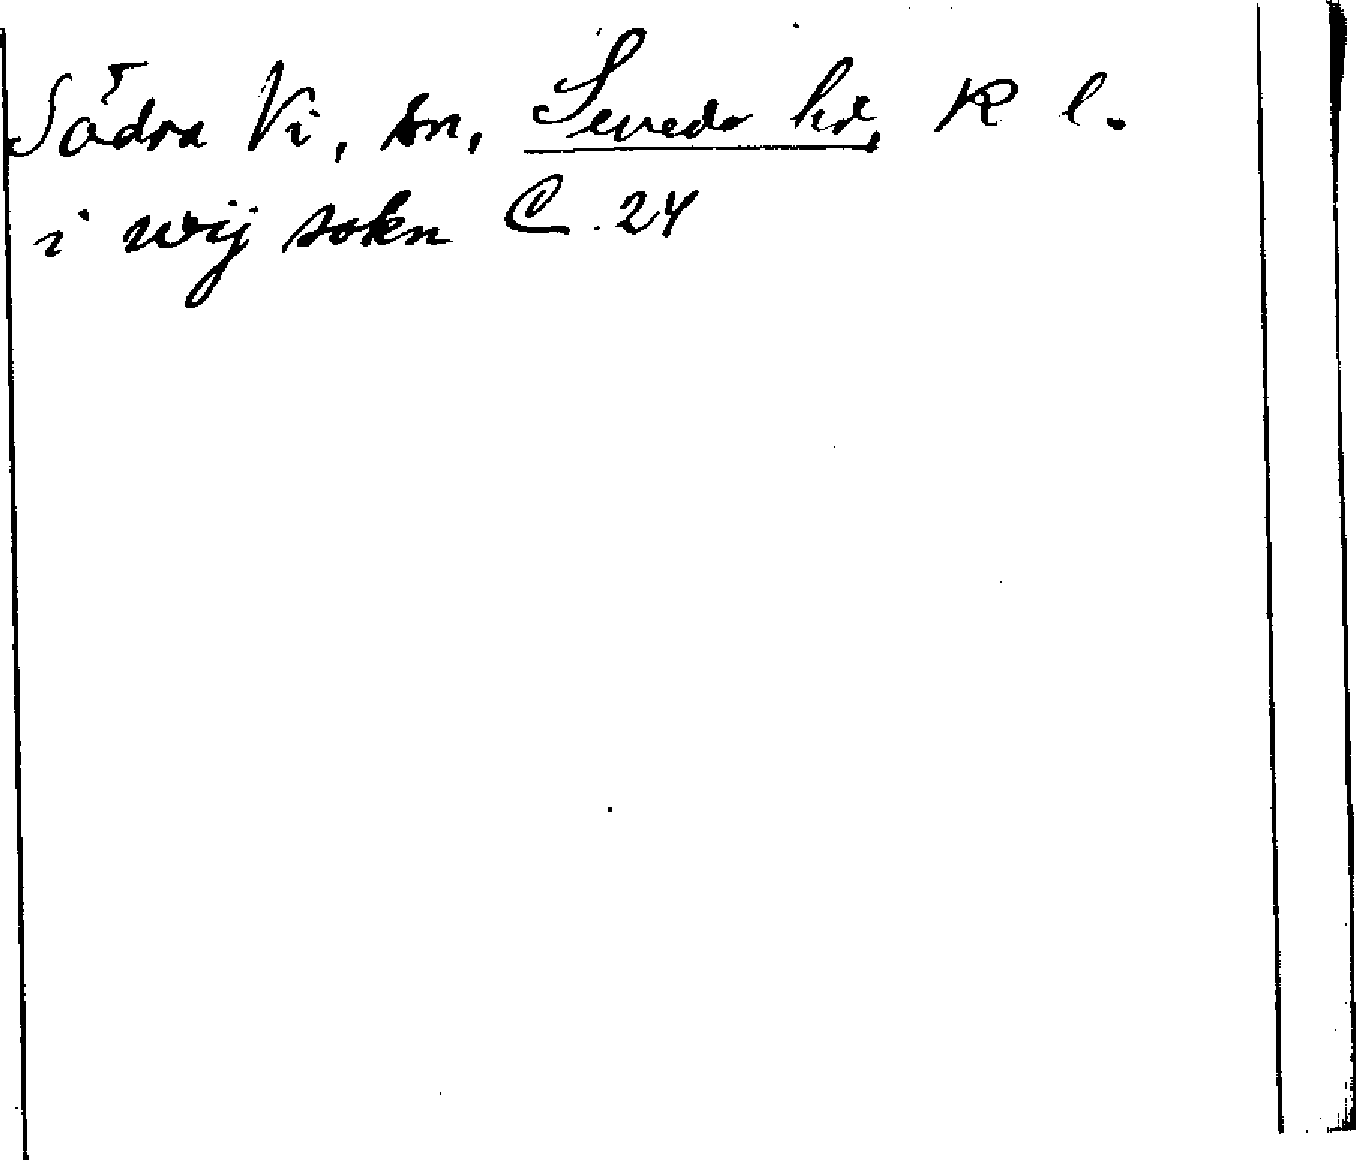 Södra Vi, sn, Sevede hd, K l.
i wij sokn C. 24